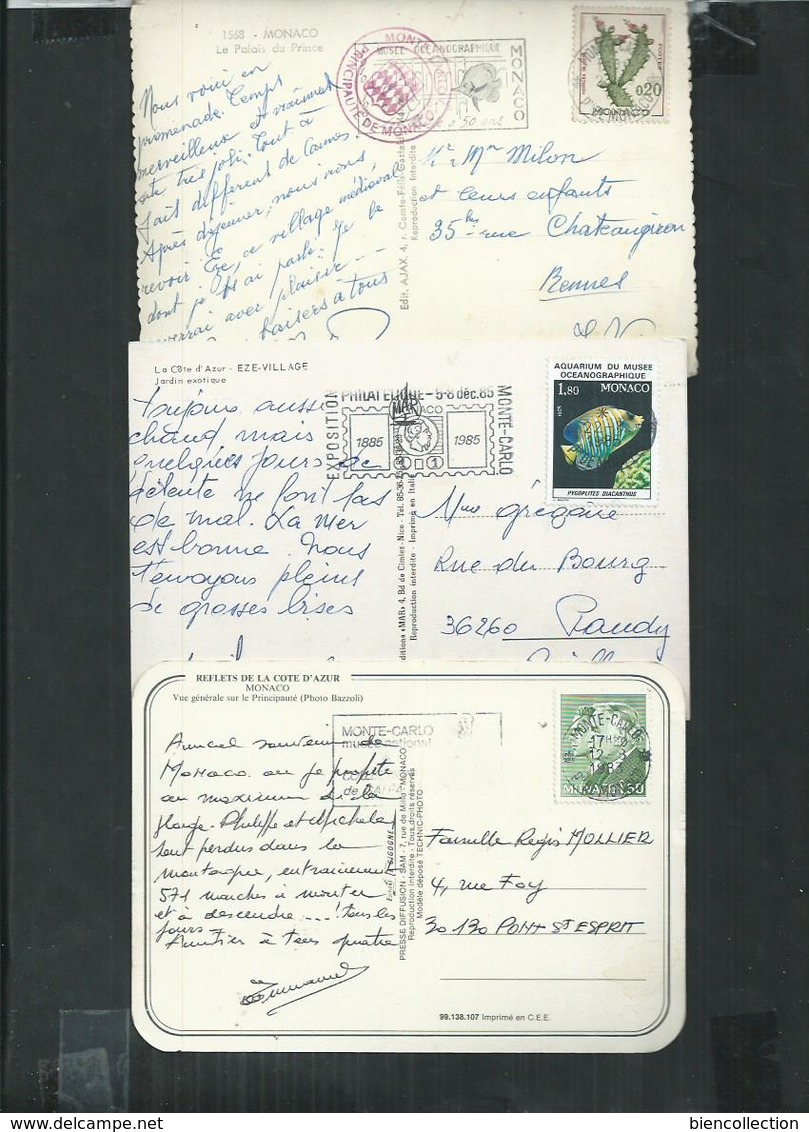 1568 - MONACO
Le Palais du Prince
MUSÉE OCEANOGRAPHIQUE
MONACO
a 50 ans
PRINCIPAUTÉ DE MONACO
0,20
MONACO
Nous voici en
promenade. Temps
merveilleux et vraiment
site très joli. Tout à
fait différent de Cannes.
Après déjeuner, nous irons
revoir Eze, ce village médiéval
dont je vs ai parlé. Je le
verrai avec plaisir
baisers à tous
Edit. AJAX, 4, r. Comte-Félix-Gastaldi
Reproduction interdite
Mr Mme Milon
et leurs enfants
35 bis rue Chateaugiron
Rennes
La Côte d'Azur - EZE-VILLAGE
Jardin exotique
EXPOSITION PHILATELIQUE - 5-8 déc. 85
MONTE-CARLO
MONACO
1885
1985
AQUARIUM DU MUSEE
OCEANOGRAPHIQUE
1,80 MONACO
PYGOPLITES DIACANTHUS
Toujours aussi
chaud mais
quelques jours de
détente ne font pas
de mal. La mer
est bonne. Nous
t'envoyons pleins
de grosses bises
Editions «MAR» 4, Bd de Cimiez - Nice - Tél.
Reproduction interdite - Imprimé en Italie
Mme Grégoire
Rue du Bourg
36260 Paudy
REFLETS DE LA COTE D'AZUR
MONACO
Vue générale sur le Principauté (Photo Bazzoli)
MONTE-CARLO
musée national
MONTE-CARLO
17H
12-
MONACO 1,50
Amical souvenir de
Monaco où je profite
au maximum de la
plage. Philippe et Michela
sont perdus dans la
montagne, entrainement
571 marches à monter
et à descendre ...! tous les
jours
Amitiés à tous quatre
Emmanuel
PRESSE DIFFUSION - SAM - 7, rue de Millo - MONACO
Reproduction interdite - Tous droits réservés
Modèle déposé TECHNIC-PHOTO
Famille Regis MOLLIER
4, rue Foy
30130 PONT ST ESPRIT
99.138.107 Imprimé en C.E.E.
biencollection